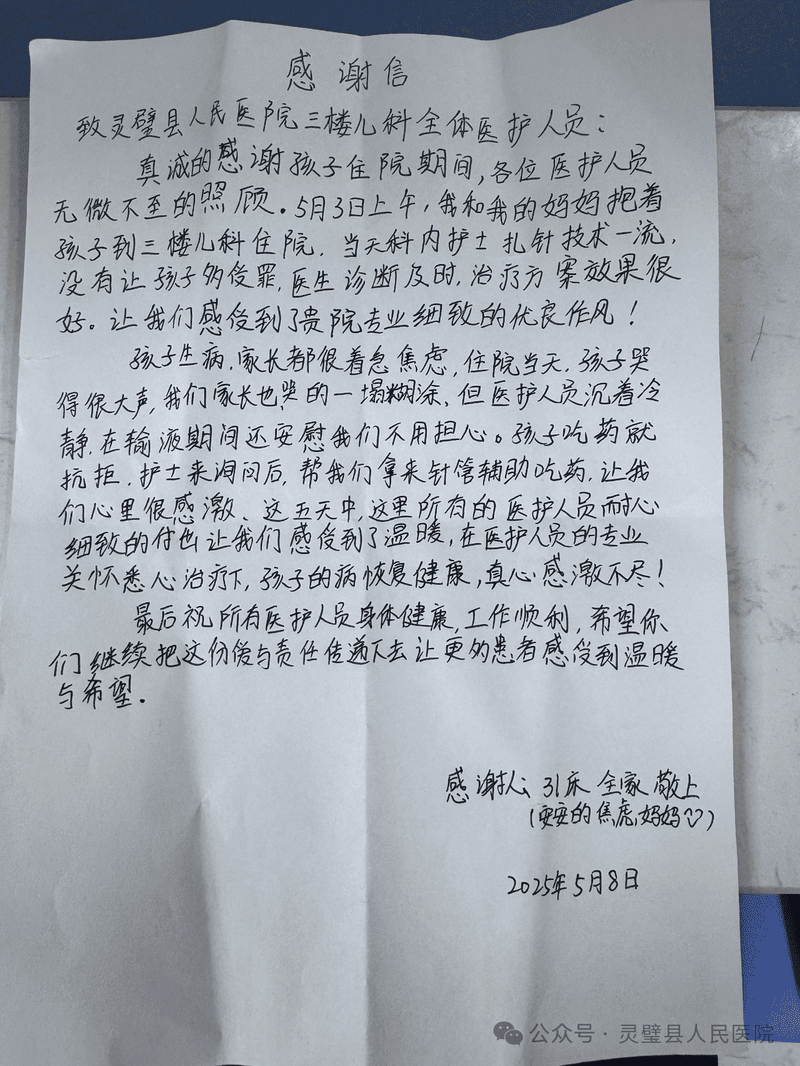 感谢信
致灵璧县人民医院三楼儿科全体医护人员：
真诚的感谢孩子住院期间，各位医护人员
无微不至的照顾。5月3日上午，我和我的妈妈抱着
孩子到三楼儿科住院，当天科内护士扎针技术一流，
没有让孩子多受罪，医生诊断及时，治疗方案效果很
好。让我们感受到了贵院专业细致的优良作风！
孩子生病，家长都很着急焦虑，住院当天，孩子哭
得很大声，我们家长也哭的一塌糊涂、但医护人员沉着冷
静，在输液期间还安慰我们不用担心。孩子吃药就
抗拒，护士来询问后，帮我们拿来针管辅助吃药，让我
们心里很感激、这五天中，这里所有的医护人员耐心
细致的付出让我们感受到了温暖，在医护人员的专业
关怀悉心治疗下，孩子的病恢复健康，真心感激不尽！
最后祝所有医护人员身体健康，工作顺利，希望你
们继续把这份爱与责任传递下去让更多患者感受到温暖
与希望。
感谢人：31床 全家 敬上
（安安的焦虑妈妈）
2025年5月8日
公众号·灵璧县人民医院